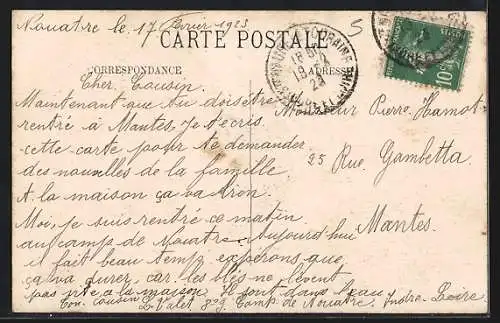 Nouatre le, 17 Février 1923
5
CARTE POSTALE
CORRESPONDANCE
ADRESSE
10c
Cher Cousin.
Maintenant que tu dois être
rentré à Mantes, je t'ecris
cette carte pour te demander
des nouvelles de la famille
A la maison ça va bien.
Moi, je suis rentré ce matin
au camps de Nouatre. Aujourd'hui
il fait beau temp esperons que
ça va durer, car les blés ne lèvent
pas vite à la maison. Il sont dans l'eau.
Ton cousin L. Valet 8e g. Camp de Nouatre. Indre-Loire
Monsieur Pierre Hamot
25 Rue Gambetta
Mantes.